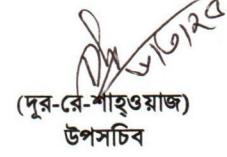 (দূর-রে-শাহ্ওয়াজ)
উপসচিব